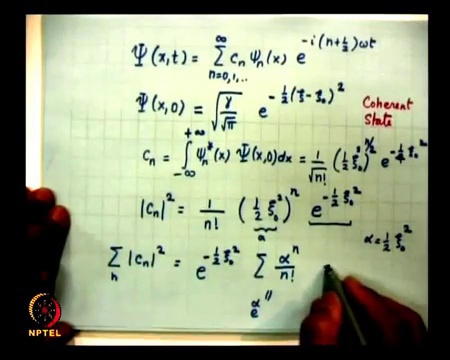 Ψ(x,t) = ∑_{n=0,1,..}^{∞} c_n ψ_n(x) e^{-i(n+½)ωt}
Ψ(x,0) = √(γ/√π) e^{-½(ξ-ξ₀)²}
Coherent
State
c_n = ∫_{-∞}^{+∞} ψ_n*(x) Ψ(x,0)dx = 1/√n! (½ ξ₀²)^{n/2} e^{-¼ξ₀²}
|c_n|² = 1/n! (½ ξ₀²)^n e^{-½ξ₀²}
α
α = ½ ξ₀²
∑_n |c_n|² = e^{-½ξ₀²} ∑ αⁿ/n!
"
e^α
NPTEL